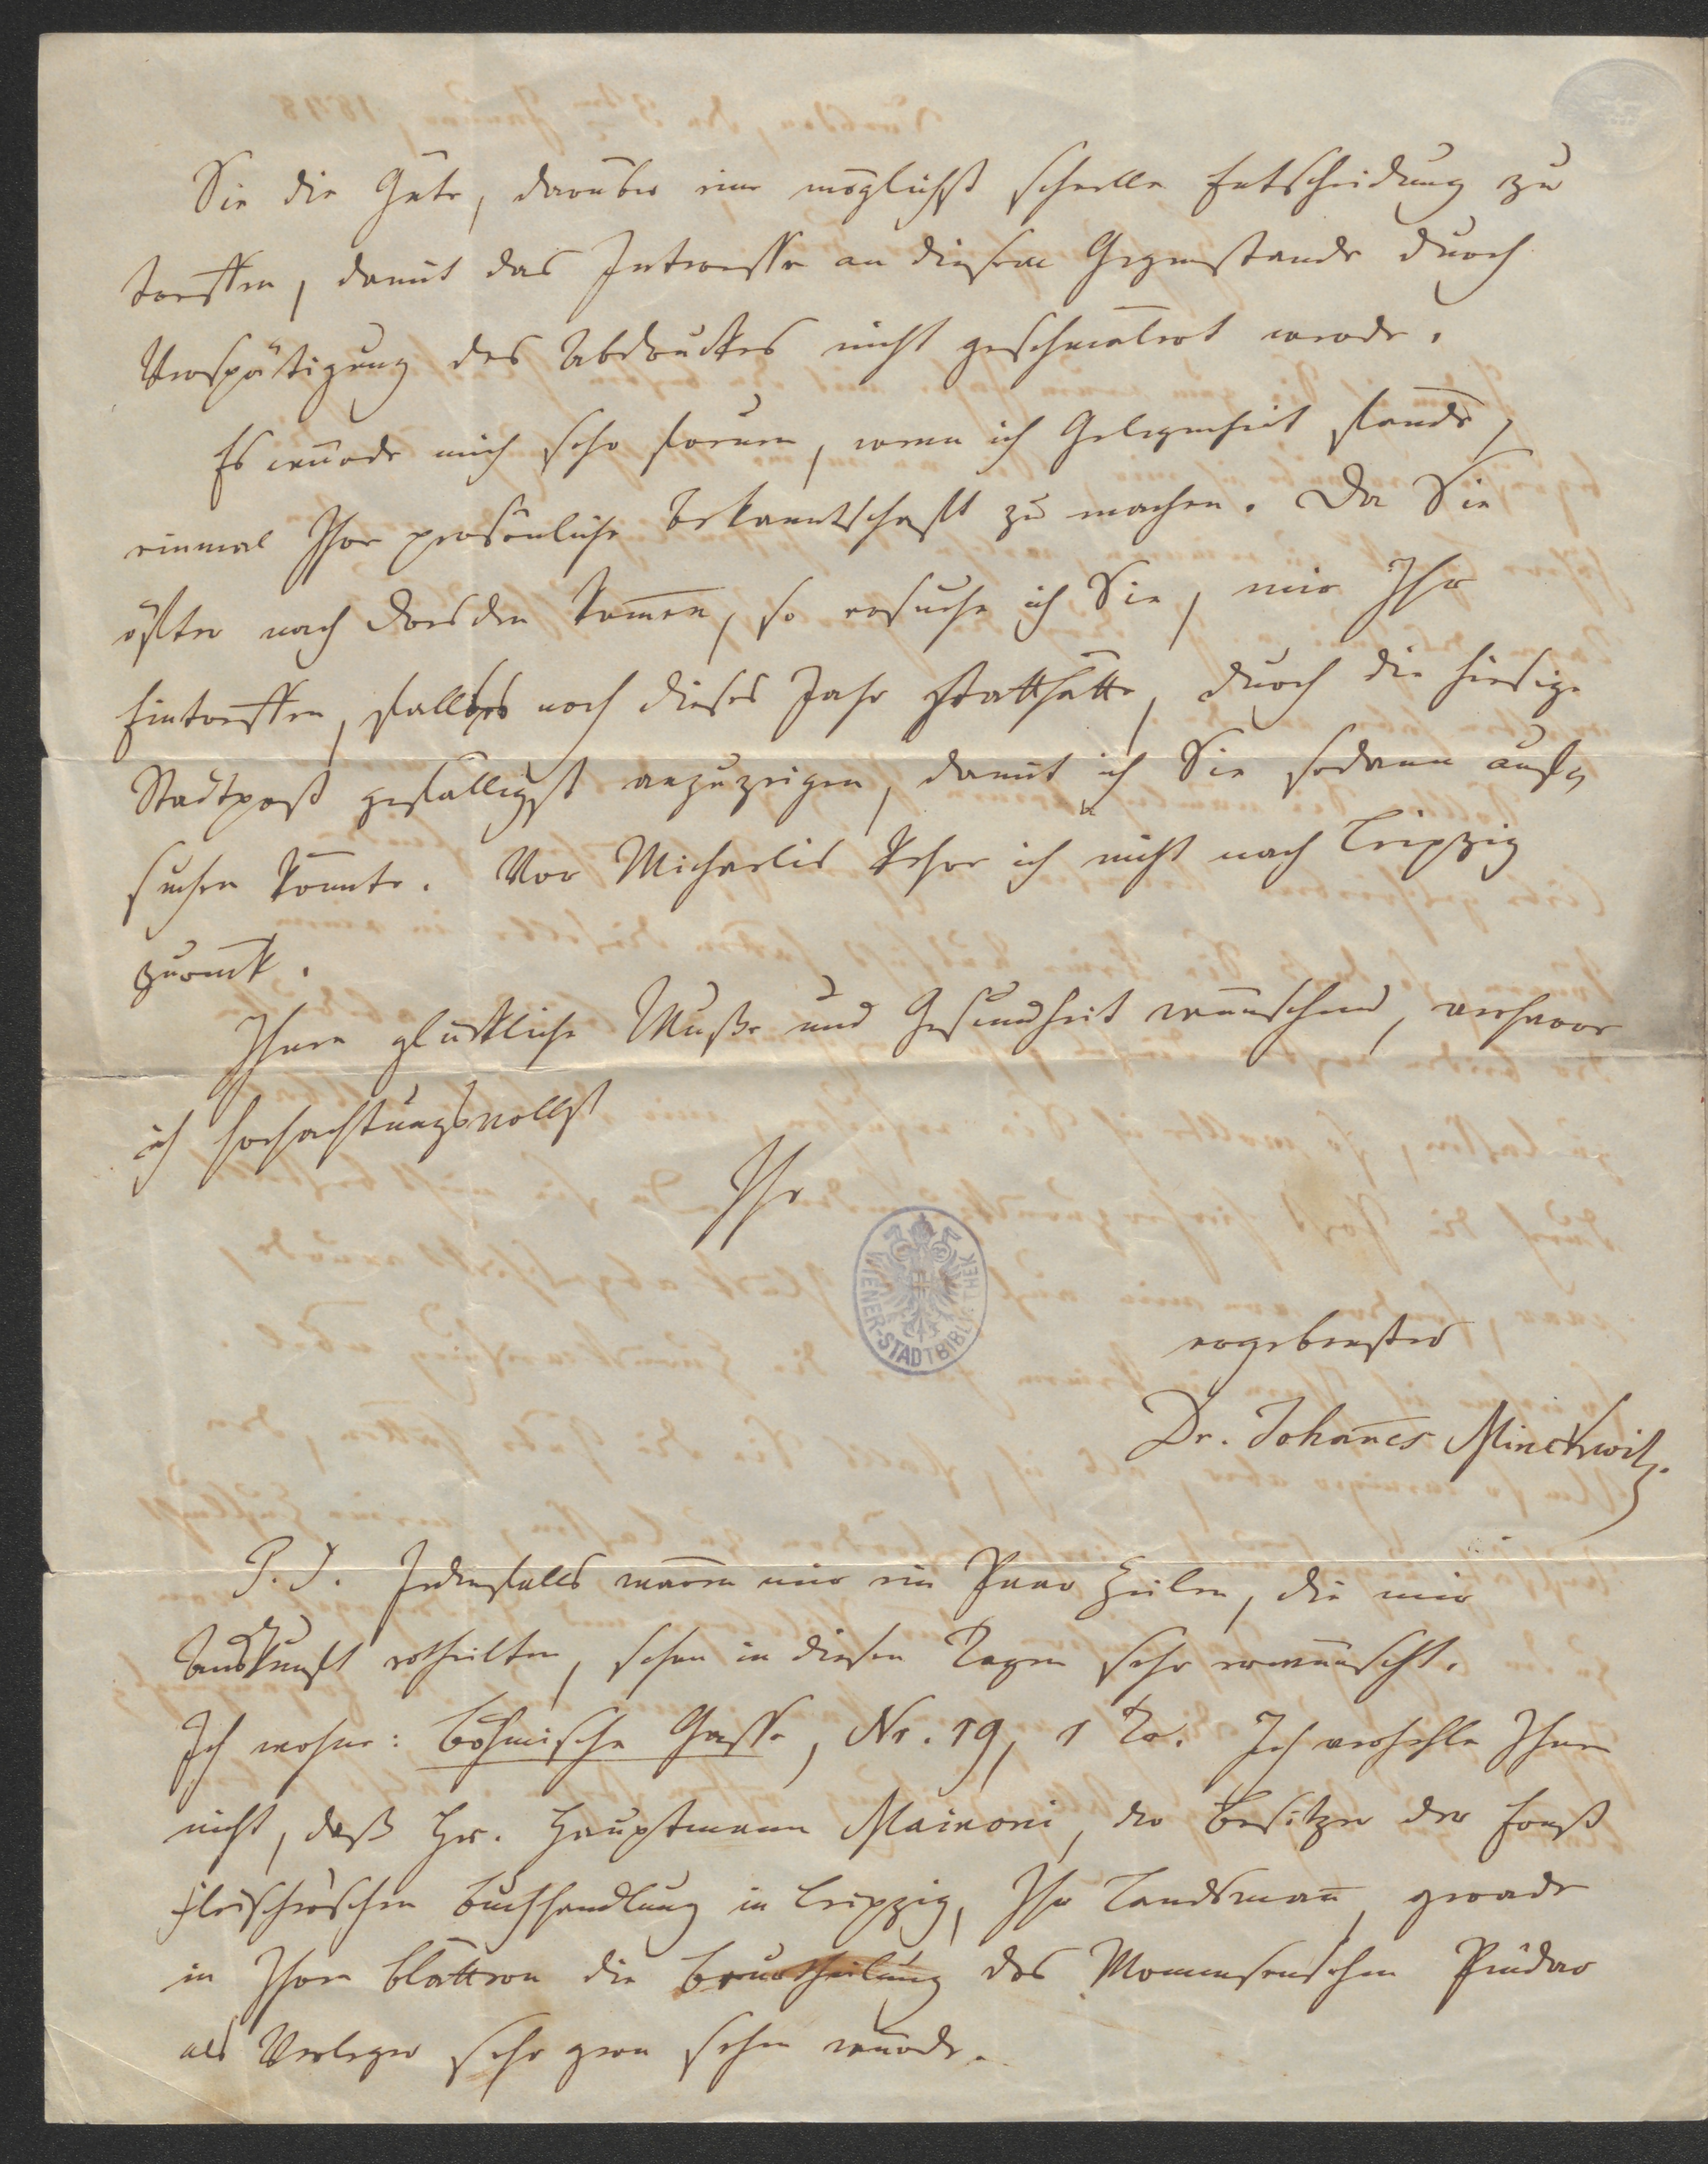 Sie die Güte, darüber eine möglichst schnelle Entscheidung zu
treffen, damit das Interesse an diesem Gegenstande durch
Verspätigung des Abdruckes nicht geschmälert werde.
Es würde mich sehr freuen, wenn ich Gelegenheit fände,
einmal Ihre persönliche Bekanntschaft zu machen. Da Sie
öfter nach Dresden kom̄en, so ersuche ich Sie, mir Ihr
Eintreffen, falls es noch dieses Jahr statthätte, durch die hiesige
Stadtpost gefälligst anzuzeigen, damit ich Sie sodann auf=
suchen könnte. Vor Michaelis kehre ich nicht nach Leipzig
zurück.
Ihnen glückliche Muße und Gesundheit wünschend, verharre
ich hochachtungsvollst
Ihr
WIENER-STADTBIBLIOTHEK
ergebenster
Dr. Johan̄es Minckwitz.
P. S. Jedenfalls wären mir ein Paar Zeilen, die mir
Auskunft ertheilten, schon in diesen Tagen sehr erwünscht.
Ich wohne: Böhmische Gasse, Nr. 19, 1 Tr. Ich verhehle Ihnen
nicht, daß Hr. Hauptmann Mainoni, der Besitzer der Ernst
Fleischerschen Buchhandlung in Leipzig, Ihr Landsman̄, gerade
in Ihren Blättern die Beurtheilung des Mommsenschen Pindar
als Verleger sehr gern sehen würde.